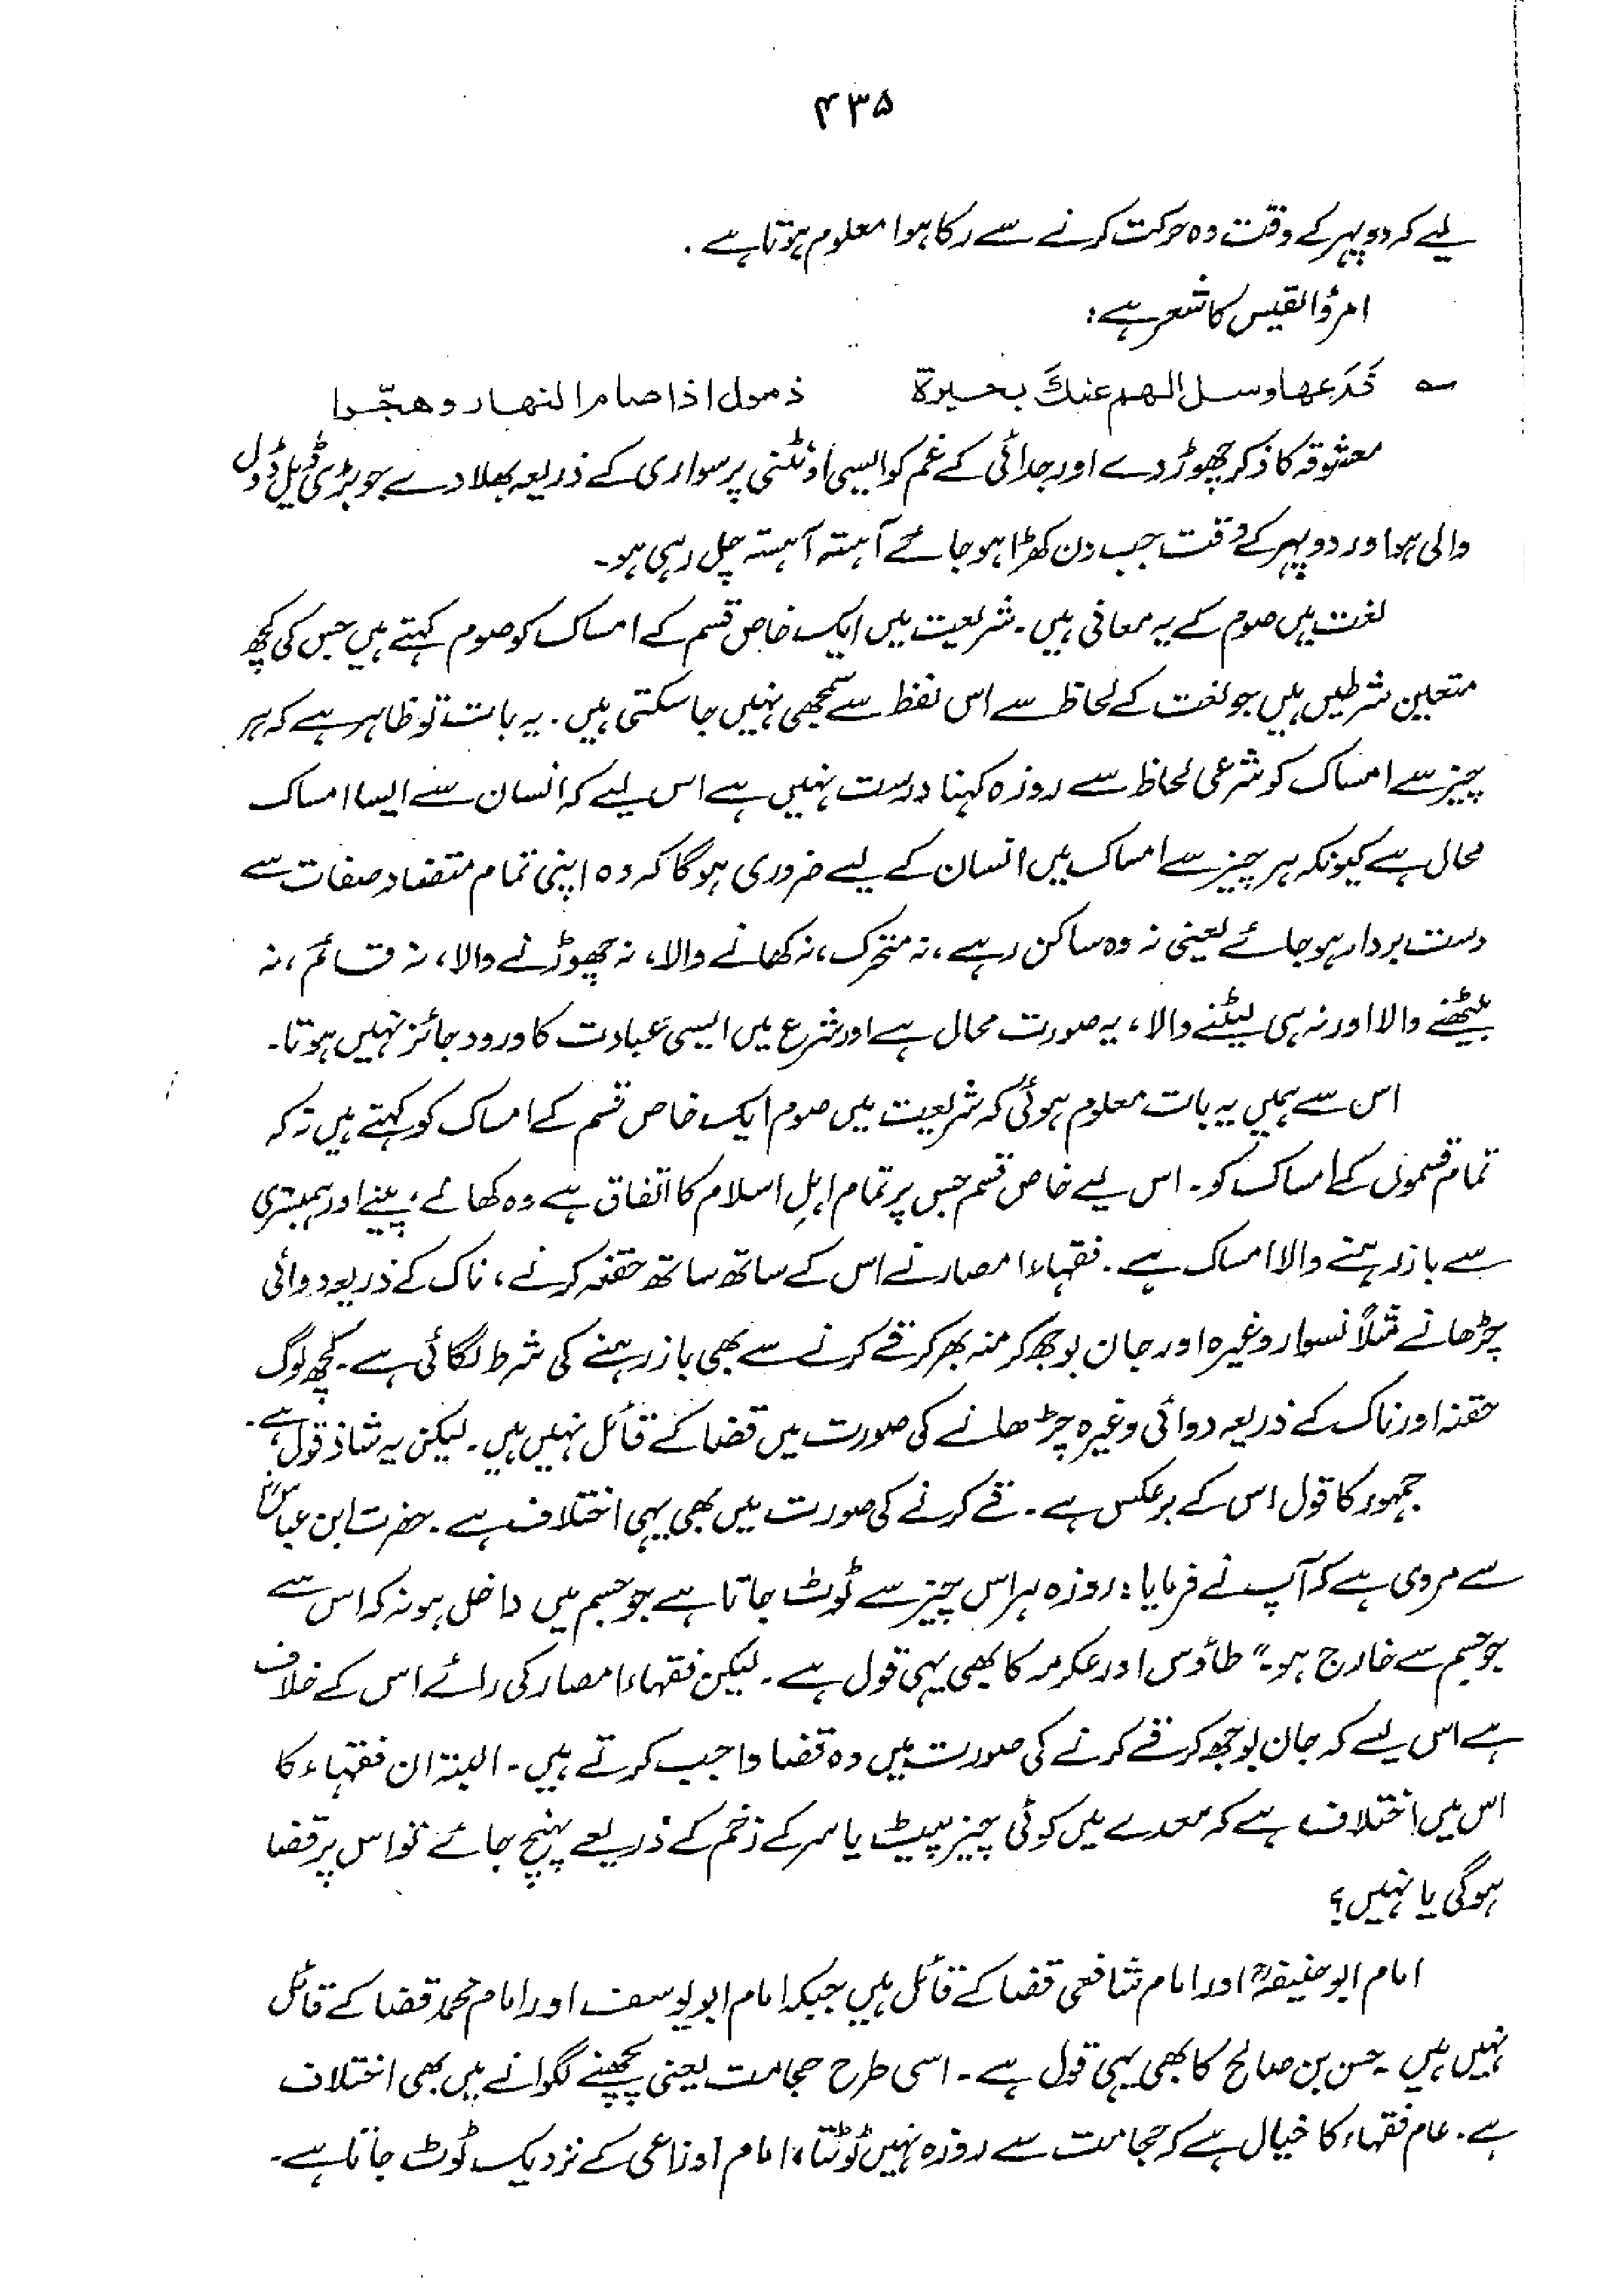 ۴۳۵
لیے کہ دوپہر کے وقت وہ حرکت کرنے سے رکا ہوا معلوم ہوتا ہے ۔
امرؤ القیس کا شعر ہے :
؎ فَدَعها وسل الهم عنكَ بجسرة ذمول اذا صام النهار وهجّرا
معشوقہ کا ذکر چھوڑ دے اور جدائی کے غم کو ایسی اونٹنی پر سواری کے ذریعہ بھلا دے جو بڑی ڈیل ڈول
والی ہو اور دوپہر کے وقت جب دن کھڑا ہو جائے آہستہ آہستہ چل رہی ہو۔
لغت میں صوم کے یہ معانی ہیں۔ شریعت میں ایک خاص قسم کے امساک کو صوم کہتے ہیں جس کی کچھ
متعین شرطیں ہیں جو لغت کے لحاظ سے اس لفظ سے سمجھی نہیں جا سکتی ہیں۔ یہ بات تو ظاہر ہے کہ ہر
چیز سے امساک کو شرعی لحاظ سے روزہ کہنا درست نہیں ہے اس لیے کہ انسان سے ایسا امساک
محال ہے کیونکہ ہر چیز سے امساک میں انسان کے لیے ضروری ہوگا کہ وہ اپنی تمام متضاد صفات سے
دست بردار ہو جائے یعنی نہ وہ ساکن رہے ، نہ متحرک ، نہ کھانے والا ، نہ چھوڑنے والا ، نہ قائم ، نہ
بیٹھنے والا اور نہ ہی لیٹنے والا ، یہ صورت محال ہے اور شرع میں ایسی عبادت کا ورود جائز نہیں ہوتا۔
اس سے ہمیں یہ بات معلوم ہوئی کہ شریعت میں صوم ایک خاص قسم کے امساک کو کہتے ہیں نہ کہ
تمام قسموں کے امساک کو۔ اس لیے خاص قسم جس پر تمام اہلِ اسلام کا اتفاق ہے وہ کھانے ، پینے اور ہمبستری
سے باز رہنے والا امساک ہے ۔ فقہاء امصار نے اس کے ساتھ ساتھ حقنہ کرنے ، ناک کے ذریعہ دوائی
چڑھانے مثلاً نسوار وغیرہ اور جان بوجھ کر منہ بھر کر قے کرنے سے بھی باز رہنے کی شرط لگائی ہے ۔ کچھ لوگ
حقنہ اور ناک کے ذریعہ دوائی وغیرہ چڑھانے کی صورت میں قضا کے قائل نہیں ہیں ۔ لیکن یہ شاذ قول ہے ۔
جمہور کا قول اس کے برعکس ہے ۔ قے کرنے کی صورت میں بھی یہی اختلاف ہے ۔ حضرت ابن عباسؓ
سے مروی ہے کہ آپ نے فرمایا : روزہ ہر اس چیز سے ٹوٹ جاتا ہے جو جسم میں داخل ہو نہ کہ اس سے
جو جسم سے خارج ہو ۔" طاؤس اور عکرمہ کا بھی یہی قول ہے ۔ لیکن فقہاء امصار کی رائے اس کے خلاف
ہے اس لیے کہ جان بوجھ کر قے کرنے کی صورت میں وہ قضا واجب کرتے ہیں ۔ البتہ ان فقہاء کا
اس میں اختلاف ہے کہ معدے میں کوئی چیز پیٹ یا سر کے زخم کے ذریعے پہنچ جائے تو اس پر قضا
ہوگی یا نہیں ؟
امام ابوحنیفہؒ اور امام شافعی قضا کے قائل ہیں جبکہ امام ابویوسف اور امام محمد قضا کے قائل
نہیں ہیں ۔ حسن بن صالح کا بھی یہی قول ہے ۔ اسی طرح حجامت یعنی پچھنے لگوانے میں بھی اختلاف
ہے ۔ عام فقہاء کا خیال ہے کہ حجامت سے روزہ نہیں ٹوٹتا ، امام اوزاعی کے نزدیک ٹوٹ جاتا ہے ۔